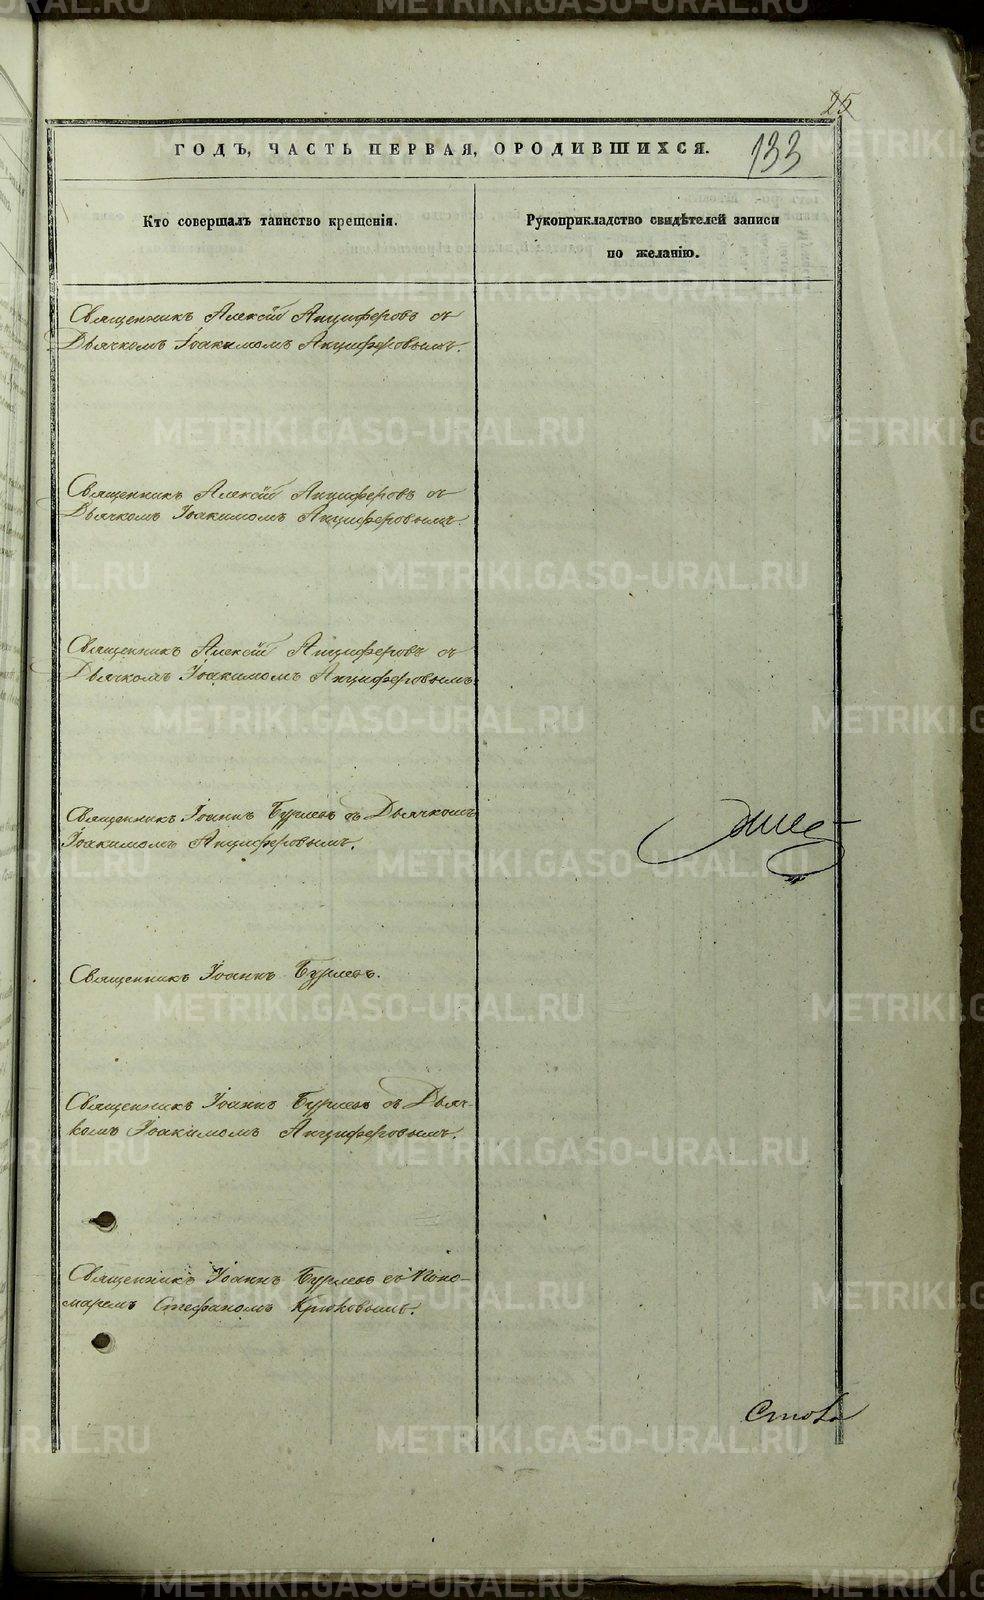 25
133
ГОДЪ, ЧАСТЬ ПЕРВАЯ, ОРОДИВШИХСЯ.
Кто совершалъ таинство крещенія.
Рукоприкладство свидѣтелей записи
по желанію.
Священникъ Алексій Анциферовъ съ
Дьячкомъ Іоакимомъ Анциферовымъ.
Священникъ Алексій Анциферовъ съ
Дьячкомъ Іоакимомъ Анциферовымъ.
Священникъ Алексій Анциферовъ съ
Дьячкомъ Іоакимомъ Анциферовымъ.
Священникъ Іоаннъ Бурлевъ съ Дьячкомъ
Іоакимомъ Анциферовымъ.
Священникъ Іоаннъ Бурлевъ.
Священникъ Іоаннъ Бурлевъ съ Дьяч-
комъ Іоакимомъ Анциферовымъ.
Священникъ Іоаннъ Бурлевъ съ Поно-
маремъ Стефаномъ Крюковымъ.
METRIKI.GASO-URAL.RU